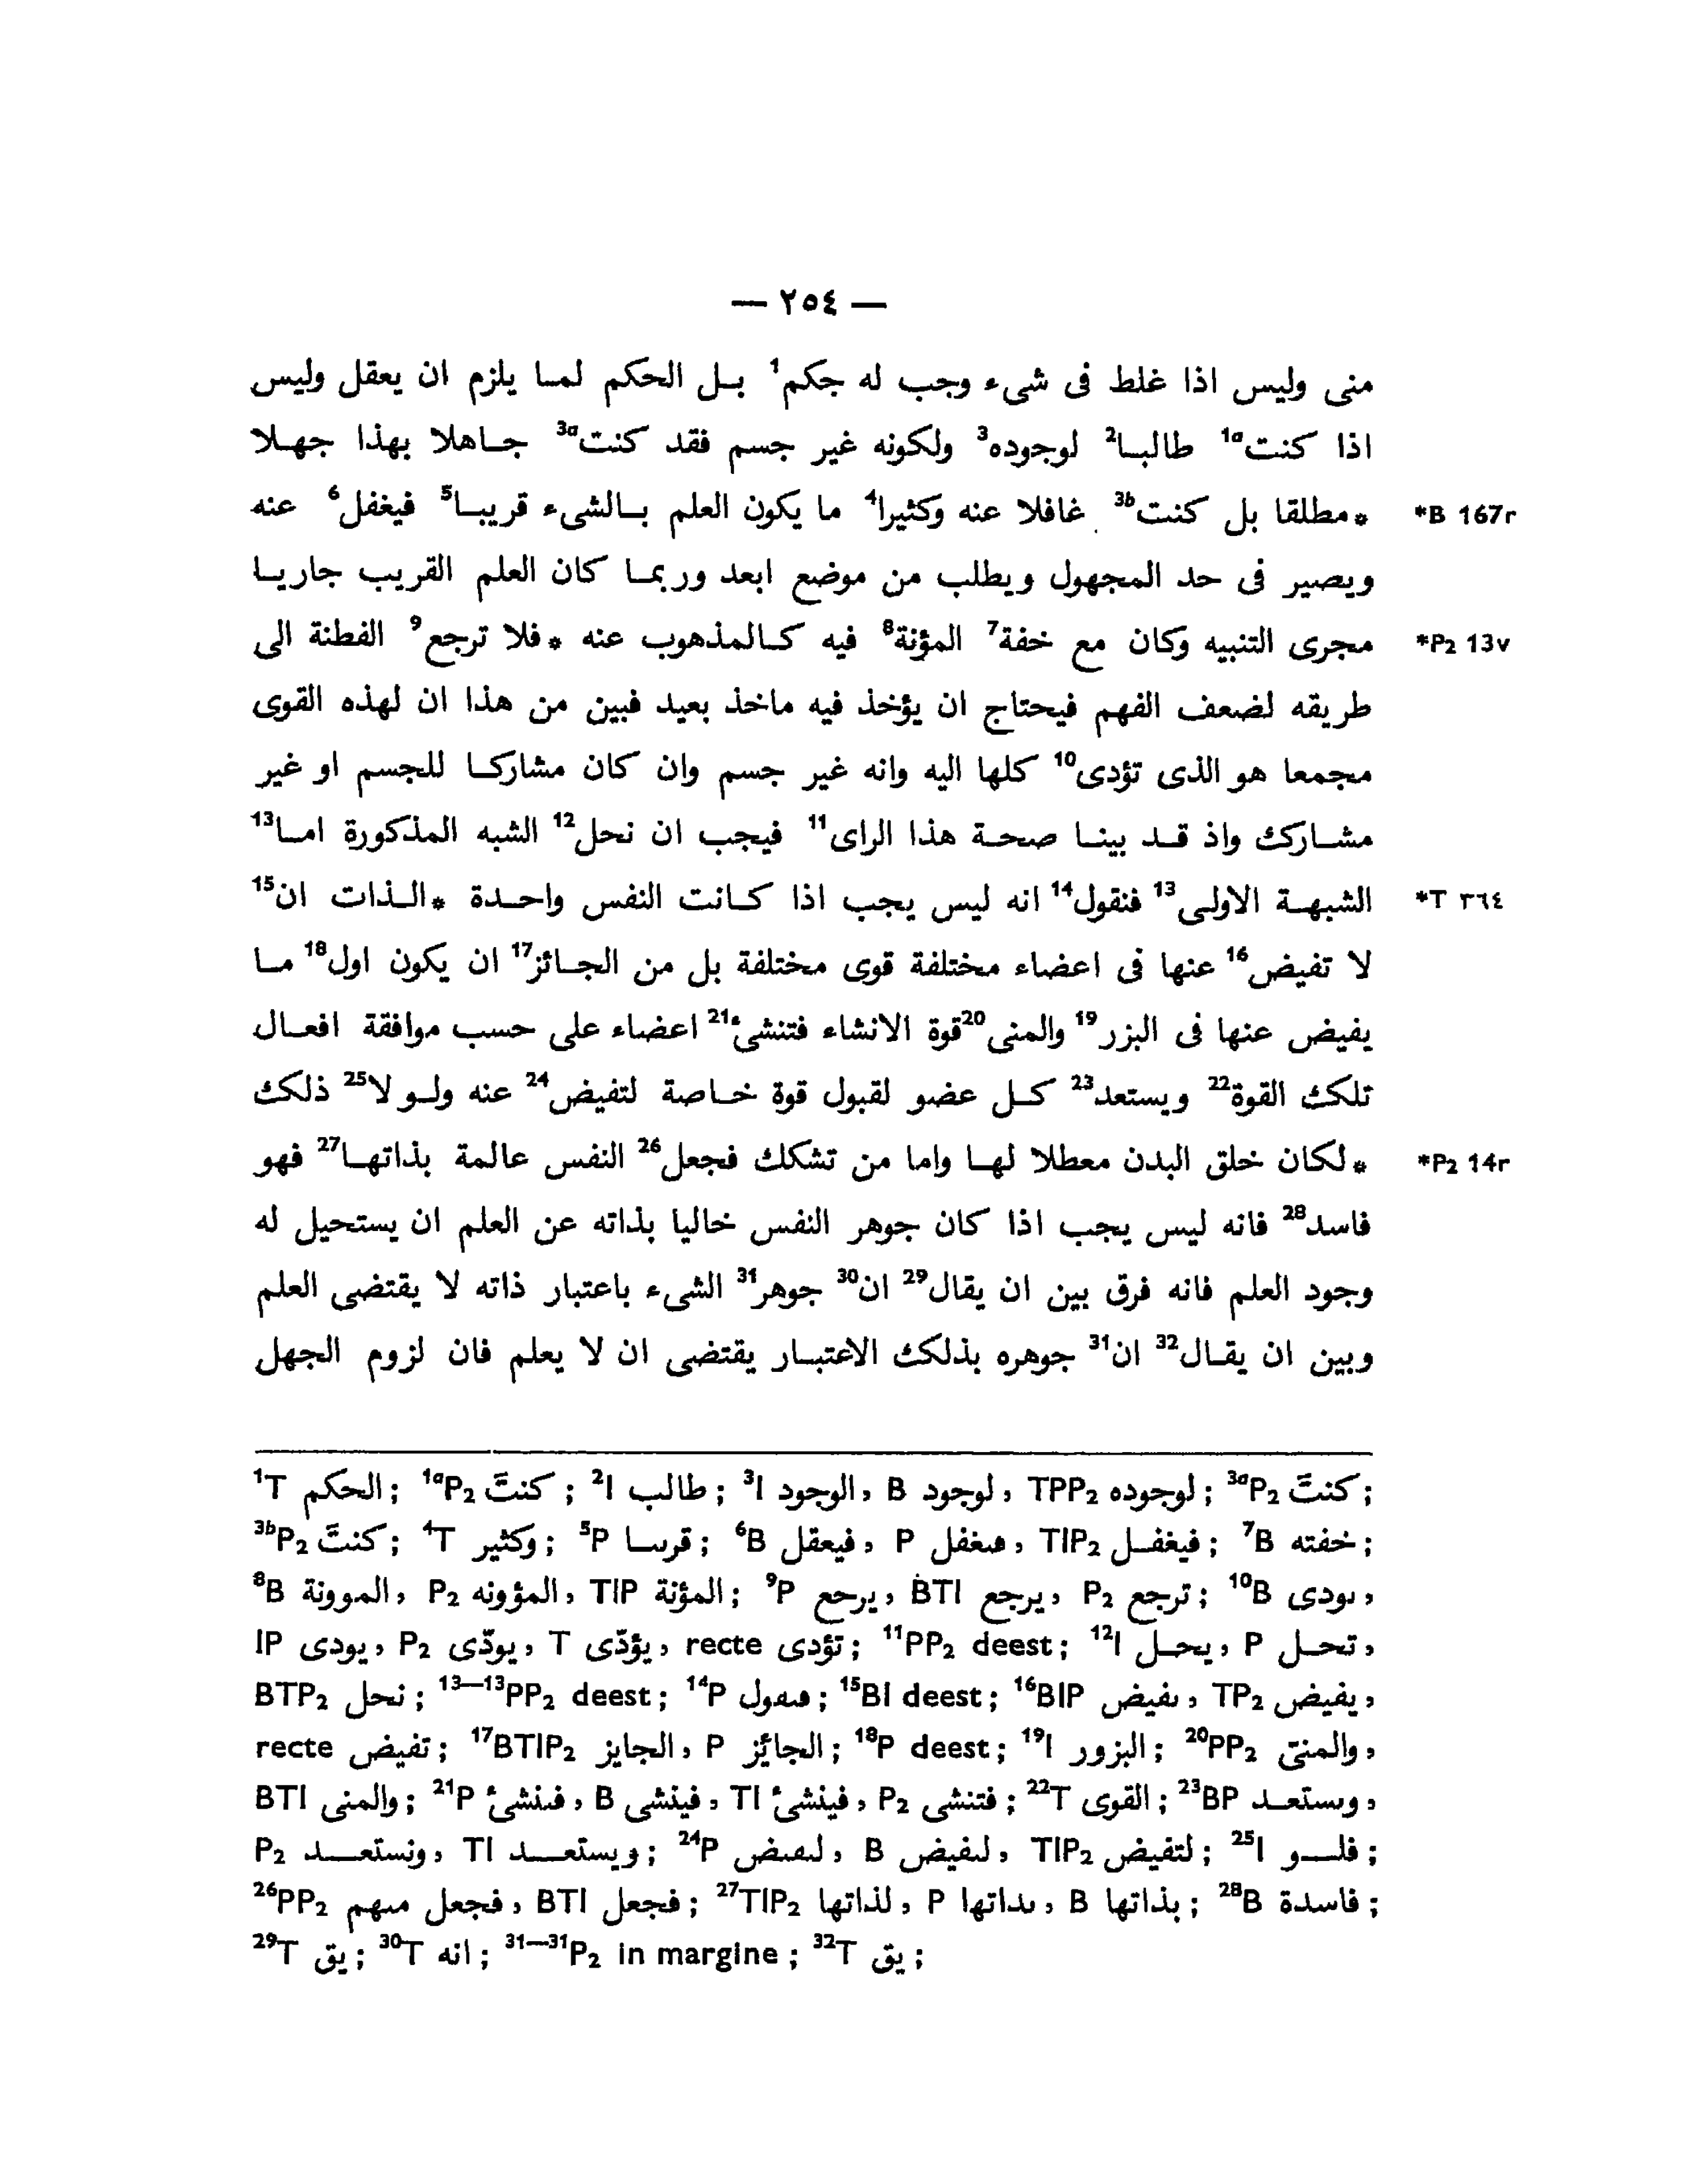 — ٢٥٤ —
منى وليس اذا غلط فى شىء وجب له جكم¹ بل الحكم لما يلزم ان يعقل وليس
اذا كنت¹ᵃ طالبا² لوجوده³ ولكونه غير جسم فقد كنت³ᵃ جاهلا بهذا جهلا
*مطلقا بل كنت³ᵇ غافلا عنه وكثيرا⁴ ما يكون العلم بالشىء قريبا⁵ فيغفل⁶ عنه *B 167r
ويصير فى حد المجهول ويطلب من موضع ابعد وربما كان العلم القريب جاريا
مجرى التنبيه وكان مع خفة⁷ المؤنة⁸ فيه كالمذهوب عنه *فلا ترجع⁹ الفطنة الى *P₂ 13v
طريقه لضعف الفهم فيحتاج ان يؤخذ فيه ماخذ بعيد فبين من هذا ان لهذه القوى
مجمعا هو الذى تؤدى¹⁰ كلها اليه وانه غير جسم وان كان مشاركا للجسم او غير
مشارك واذ قد بينا صحة هذا الراى¹¹ فيجب ان نحل¹² الشبه المذكورة اما¹³
الشبهة الاولى¹³ فنقول¹⁴ انه ليس يجب اذا كانت النفس واحدة *الذات ان¹⁵ *T ٣٦٤
لا تفيض¹⁶ عنها فى اعضاء مختلفة قوى مختلفة بل من الجائز¹⁷ ان يكون اول¹⁸ ما
يفيض عنها فى البزر¹⁹ والمنى²⁰ قوة الانشاء فتنشىء²¹ اعضاء على حسب موافقة افعال
تلك القوة²² ويستعد²³ كل عضو لقبول قوة خاصة لتفيض²⁴ عنه ولو لا²⁵ ذلك
*لكان خلق البدن معطلا لها واما من تشكك فجعل²⁶ النفس عالمة بذاتها²⁷ فهو *P₂ 14r
فاسد²⁸ فانه ليس يجب اذا كان جوهر النفس خاليا بذاته عن العلم ان يستحيل له
وجود العلم فانه فرق بين ان يقال²⁹ ان³⁰ جوهر³¹ الشىء باعتبار ذاته لا يقتضى العلم
وبين ان يقال³² ان³¹ جوهره بذلك الاعتبار يقتضى ان لا يعلم فان لزوم الجهل
¹T الحكم ; ¹ᵃP₂ كنتَ ; ²I طالب ; ³I الوجود , B لوجود , TPP₂ لوجوده ; ³ᵃP₂ كنتَ ;
³ᵇP₂ كنتَ ; ⁴T وكثير ; ⁵P قرسا ; ⁶B فيعقل , P فىغفل , TIP₂ فيغفل ; ⁷B خفته ;
⁸B الموونة , P₂ المؤونه , TIP المؤنة ; ⁹P يرحع , BTI يرجع , P₂ ترجع ; ¹⁰B ىودى ,
IP يودى , P₂ يودّى , T يؤدّى , recte تؤدى ; ¹¹PP₂ deest ; ¹²I يحل , P تحل ,
BTP₂ نحل ; ¹³—¹³PP₂ deest ; ¹⁴P فىقول ; ¹⁵BI deest ; ¹⁶BIP ىفيض , TP₂ يفيض ,
recte تفيض ; ¹⁷BTIP₂ الجايز , P الجائز ; ¹⁸P deest ; ¹⁹I البزور ; ²⁰PP₂ والمنىّ ,
BTI والمنى ; ²¹P فىنشئ , B فينشى , TI فينشئ , P₂ فتنشى ; ²²T القوى ; ²³BP وىستعد ,
P₂ ونستعد , TI ويستعد ; ²⁴P لىفىض , B لىفيض , TIP₂ لتفيض ; ²⁵I فلو ;
²⁶PP₂ فجعل منهم , BTI فجعل ; ²⁷TIP₂ لذاتها , P ىداتها , B بذاتها ; ²⁸B فاسدة ;
²⁹T يق ; ³⁰T انه ; ³¹—³¹P₂ in margine ; ³²T يق ;